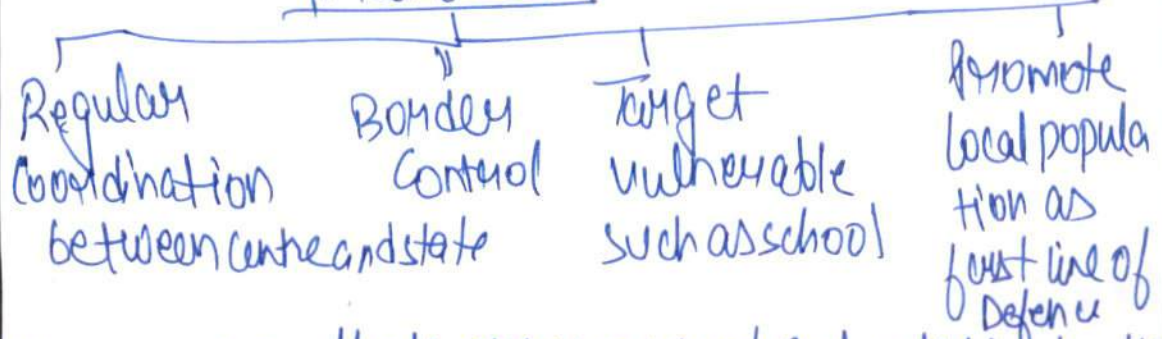 Regular
Coordination
between centre and state
Border
Control
Target
vulnerable
such as school
Promote
local popula
tion as
first line of
Defence